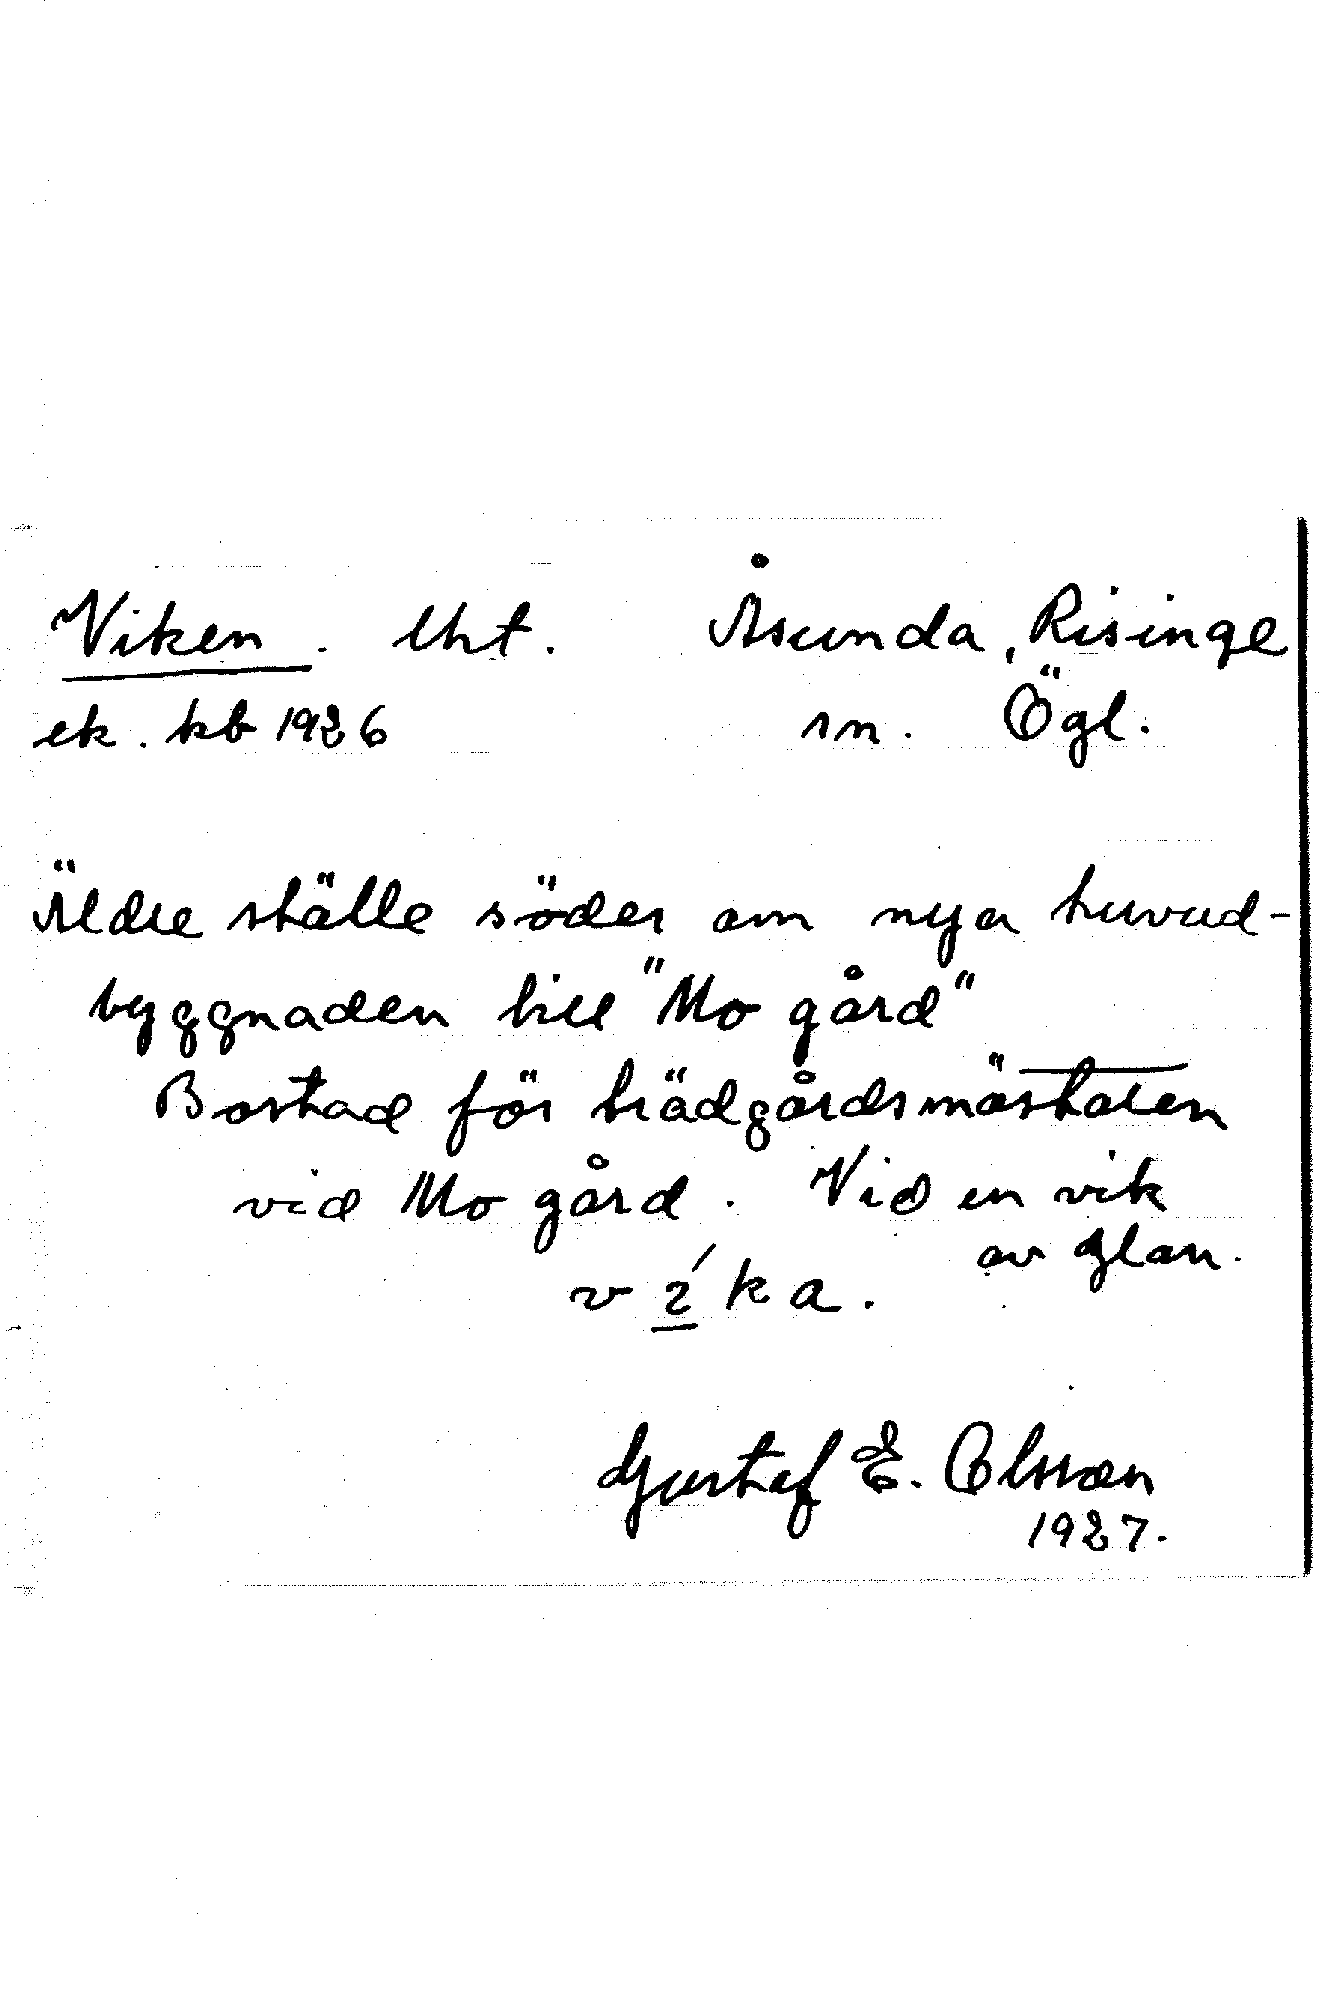 Viken. lht. Åsunda, Risinge
ek. kb 1926 sn. Ögl.
Äldre ställe söder om nya huvud-
byggnaden till "Mo gård"
Bostad för trädgårdsmästaren
vid Mo gård. Vid en vik
av Glan.
v í k a.
Gustaf E. Olsson
1927.